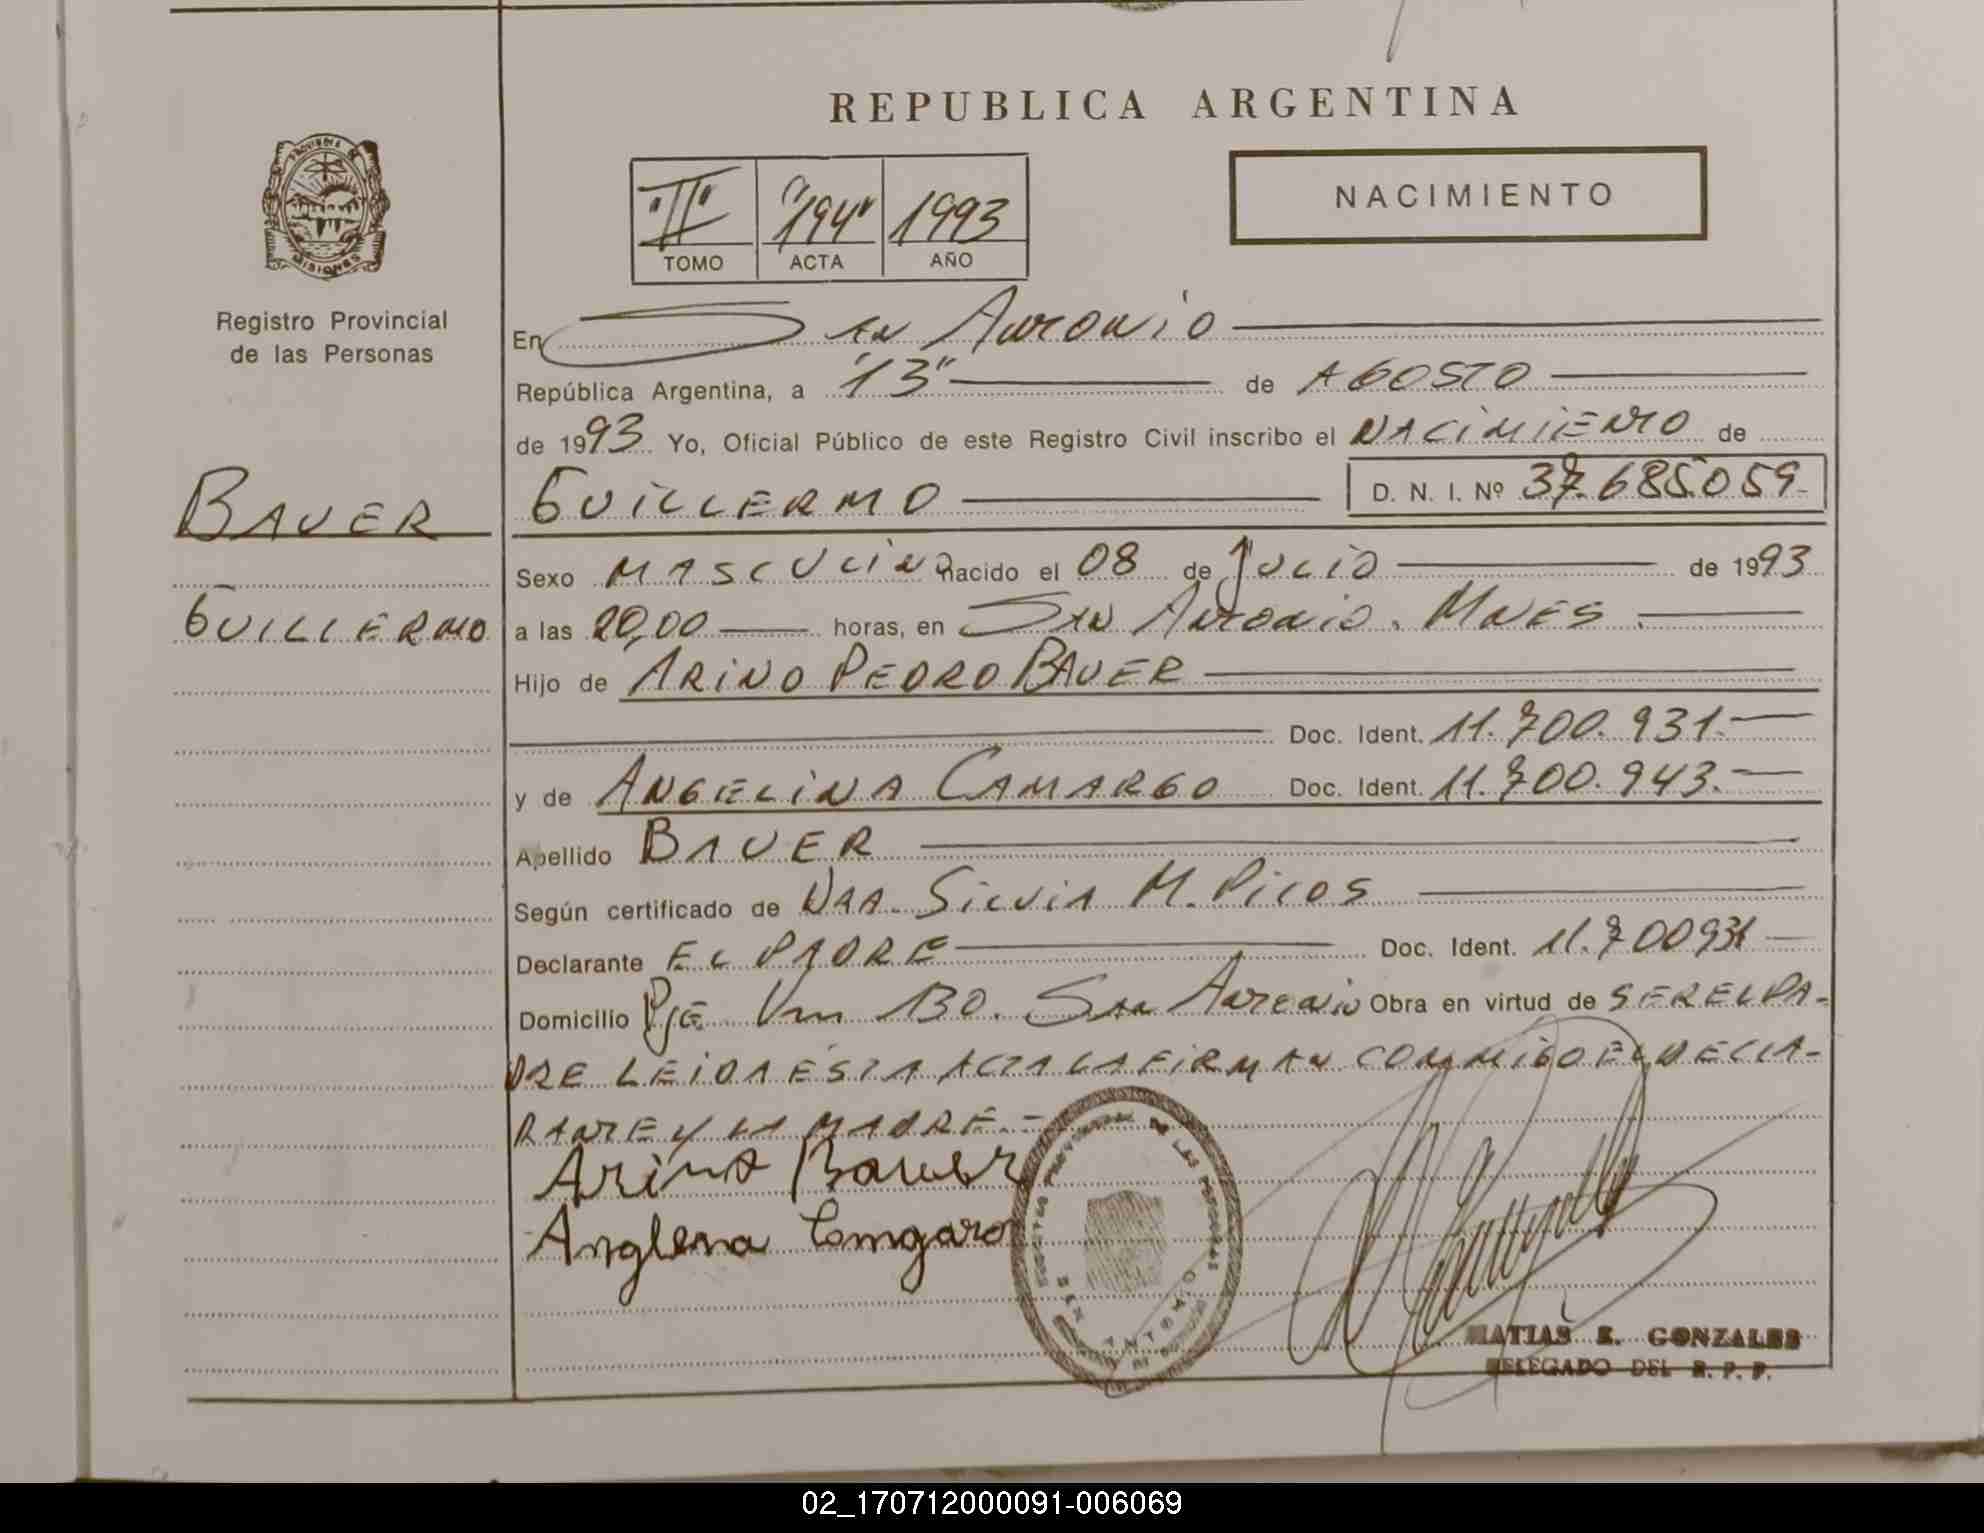 REPUBLICA ARGENTINA
PROVINCIA DE
MISIONES
Registro Provincial
de las Personas
"II" "194" 1993
TOMO ACTA AÑO
NACIMIENTO
En SAN ANTONIO
República Argentina, a "13" de AGOSTO
de 1993 Yo, Oficial Público de este Registro Civil inscribo el NACIMIENTO de
BAUER
GUILLERMO
GUILLERMO D. N. I. Nº 37.685.059-
Sexo MASCULINO nacido el 08 de JULIO de 1993
a las 20,00 horas, en SAN ANTONIO. MNES.
Hijo de ARINO PEDRO BAUER
Doc. Ident. 11.700.931.-
y de ANGELINA CAMARGO Doc. Ident. 11.700.943.-
Apellido BAUER
Según certificado de DRA. SILVIA M. PICOS
Declarante EL PADRE Doc. Ident. 11.700931
Domicilio PJE Km 130. SAN ANTONIO Obra en virtud de SER EL PA-
DRE LEIDA ESTA ACTA LA FIRMAN CONMIGO EL DECLA-
RANTE Y LA MADRE.-
Arino Bauer
Anglena Comgaro
SAN ANTONIO
MATIAS E. GONZALES
DELEGADO DEL R. P. P.
02_170712000091-006069